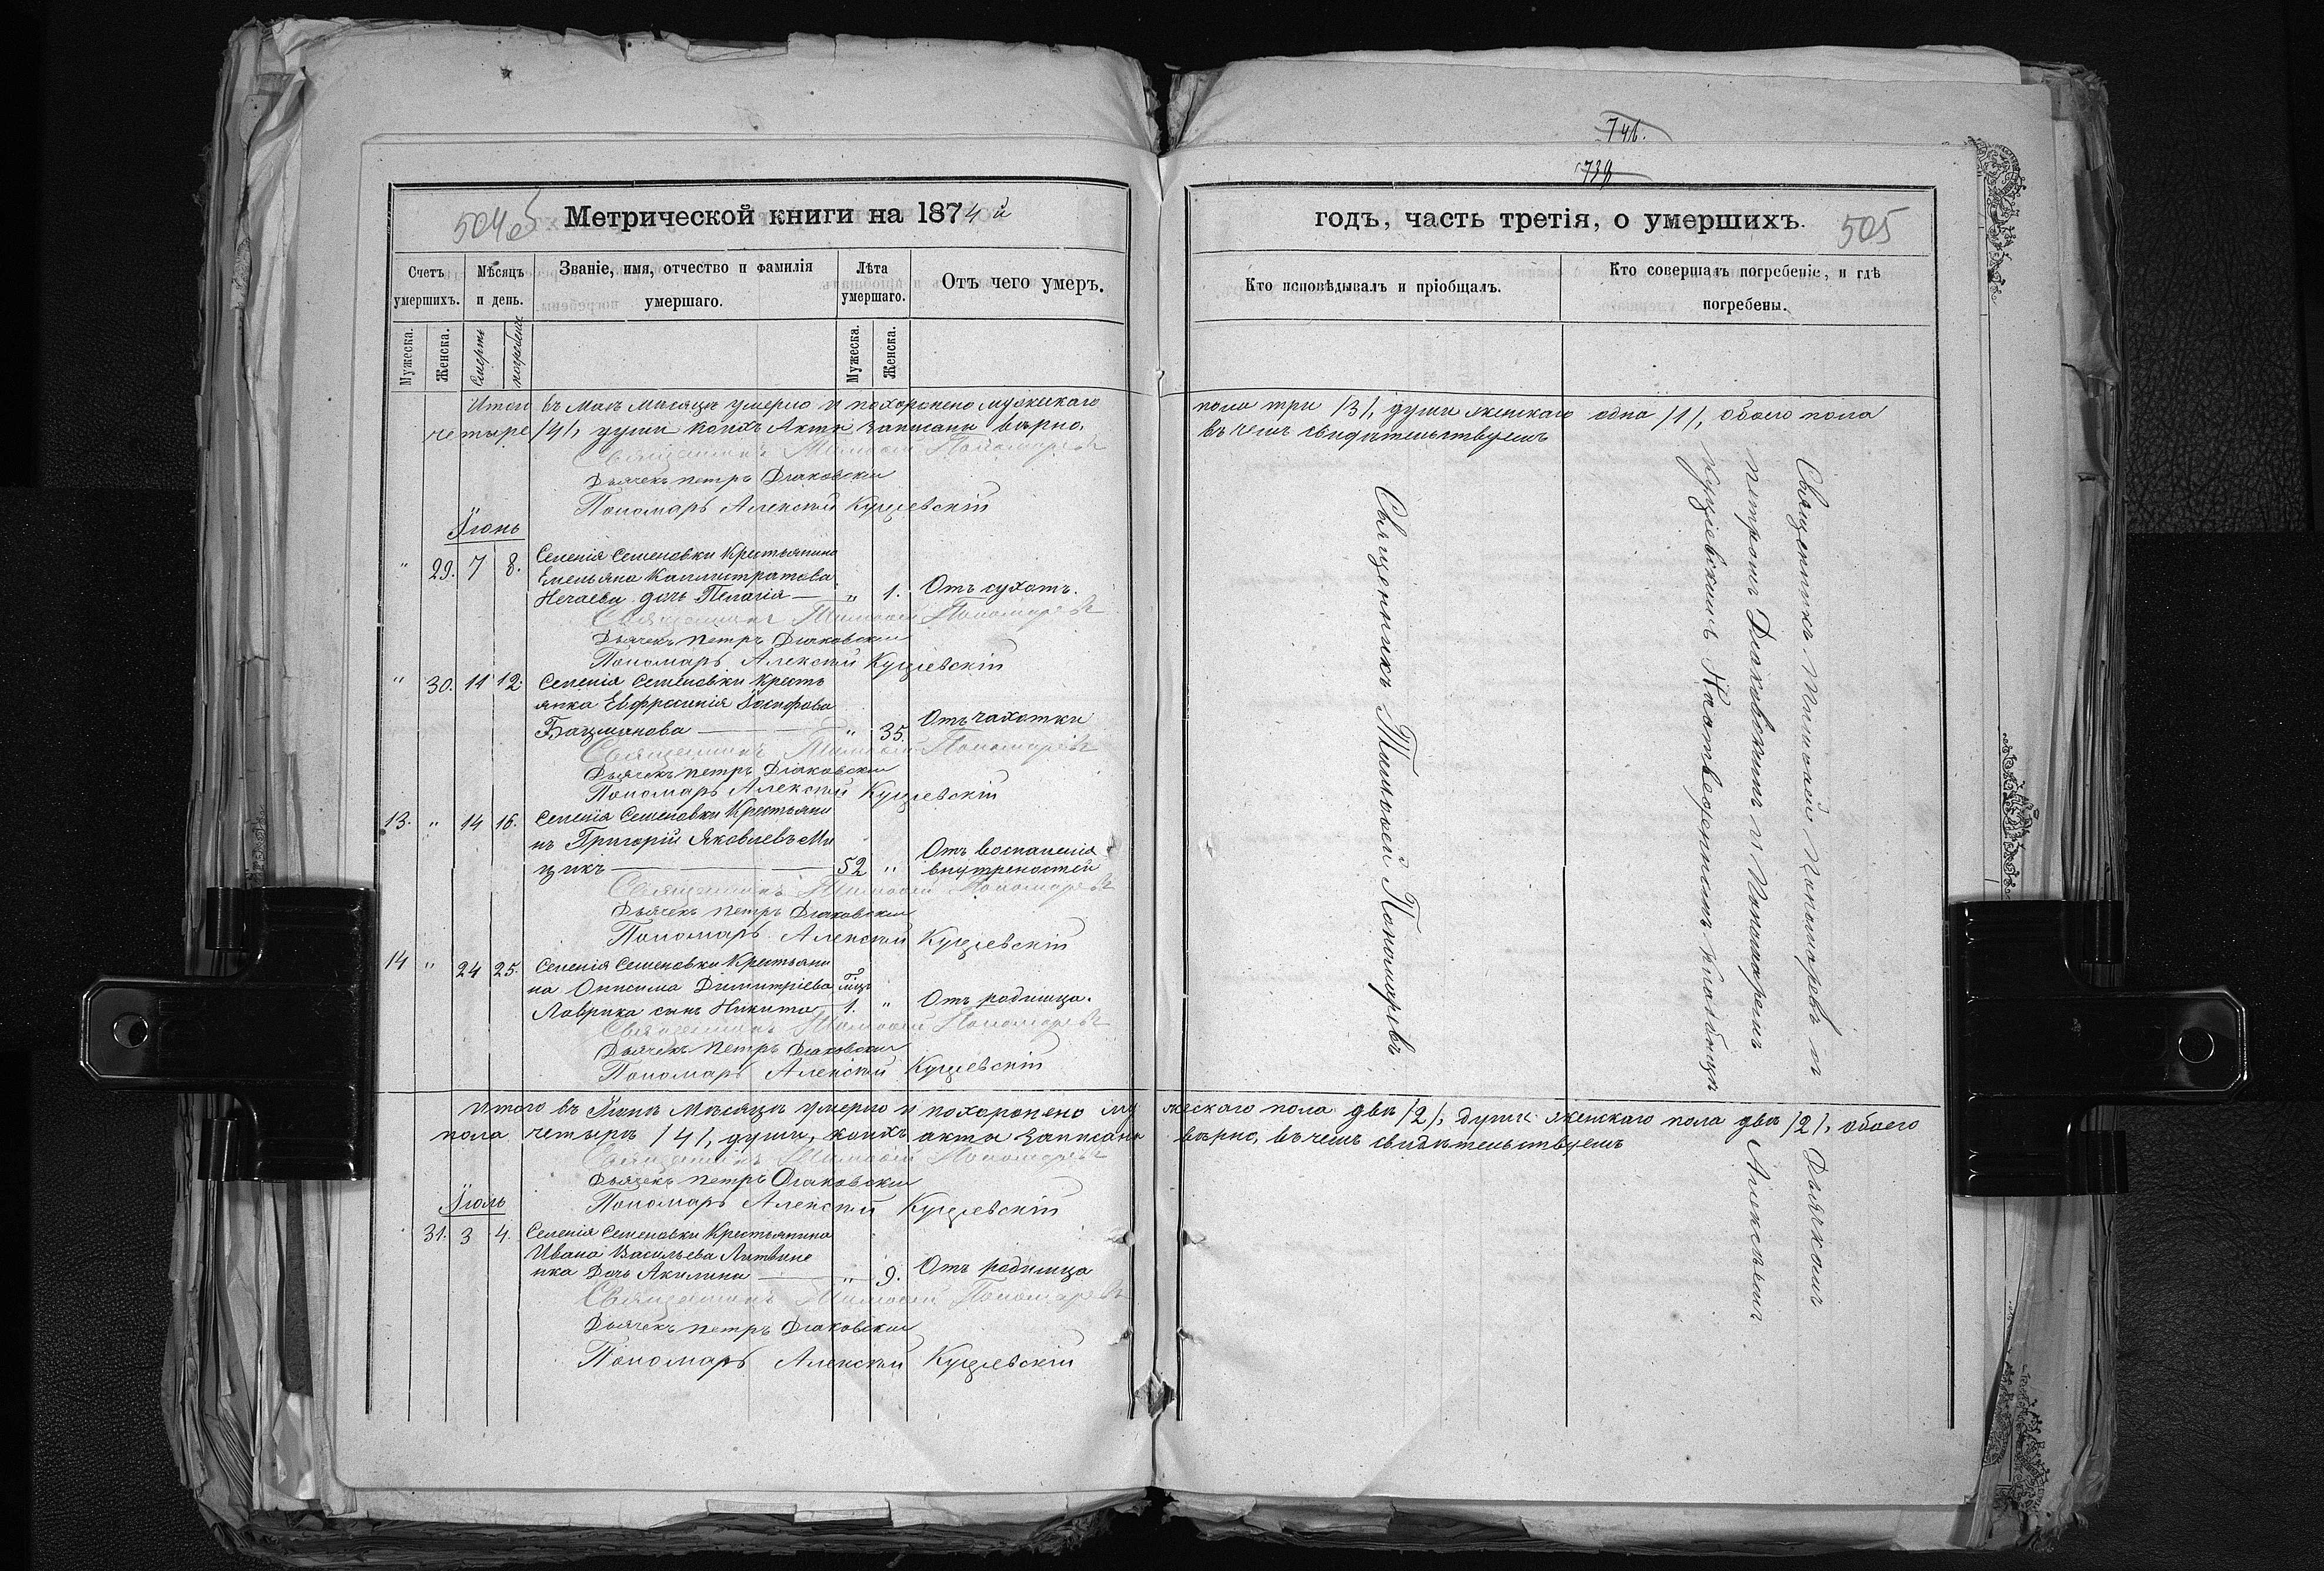 746.
739
504об
Метрической книги на 1874й
годъ, часть третія, о умершихъ.
505
Счетъ умершихъ.
Мѣсяцъ и день.
Званіе, имя, отчество и фамилія умершаго.
Лѣта умершаго.
Отъ чего умеръ.
Кто исповѣдывалъ и пріобщалъ.
Кто совершалъ погребеніе, и гдѣ погребены.
Мужеска.
Женска.
Смерть
погребенія
Мужеска.
Женска.
Итого въ Маѣ Мѣсяцѣ умерло и похоронено мужескаго
пола три /3/, души женскаго одна /1/, обоего пола
четыре /4/, души коихъ Акты записаны вѣрно,
въ чемъ свидѣтельствуемъ
Священникъ Тимофей Пономаревъ
Дьячекъ Петръ Діаковскій
Пономарь Алексѣй Кущевскій
Іюнь
" 29. 7 8. Селенія Семеновки Крестьянина
Емельяна Каллистратова
Нечаева дочь Пелагія — " 1. Отъ сухотъ.
Священникъ Тимофей Пономаревъ
Дьячекъ Петръ Діаковскій
Пономарь Алексѣй Кущевскій
" 30. 11 12. Селенія Семеновки Кресть
янка Евфросинія Іосифова
Бацманова — " 35. Отъ чахотки
Священникъ Тимофей Пономаревъ
Дьячекъ Петръ Діаковскій
Пономарь Алексѣй Кущевскій
13. " 14 16. Селенія Семеновки Крестьяни
нъ Григорій Яковлевъ Ми
щикъ — 52 " Отъ воспаленія
внутреностей
Священникъ Тимофей Пономаревъ
Дьячекъ Петръ Діаковскій
Пономарь Алексѣй Кущевскій
14 " 24 25. Селенія Семеновки Крестьяни
на Онисима Димитріева
Лаврика сынъ Никита 1. " Отъ родимца.
Священникъ Тимофей Пономаревъ
Дьячекъ Петръ Діаковскій
Пономарь Алексѣй Кущевскій
Итого въ Іюнѣ Мѣсяцѣ умерло и похоронено му
жескаго пола двѣ /2/, души женскаго пола двѣ /2/, обоего
пола четырѣ /4/, души, коихъ акты записаны
вѣрно, въ чемъ свидѣтельствуемъ
Священникъ Тимофей Пономаревъ
Дьячекъ Петръ Діаковскій
Пономарь Алексѣй Кущевскій
Іюль
31. 3 4. Селенія Семеновки Крестьянина
Ивана Васильева Литвине
нка Дочь Акилина — " 9. Отъ родимца
Священникъ Тимофей Пономаревъ
Дьячекъ Петръ Діаковскій
Пономарь Алексѣй Кущевскій
Священникъ Тимофей Пономаревъ
Священникъ Тимофей Пономаревъ съ Дьячкомъ
Петромъ Діаковскимъ и Пономаремъ Алексѣемъ
Кущевскимъ на отведенномъ кладбищѣ